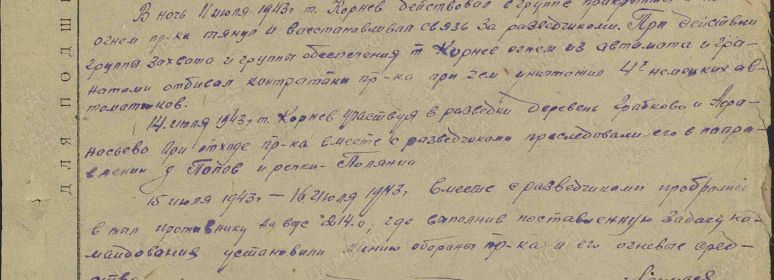 В ночь 11 июля 1943г т. Корнев действовал в группе
огнем пр-ка тянул и восстанавливал связь за разведчиками. При действии
группа захвата и группы обеспечения т Корнев огнем из автомата и гра-
натами отбивал контратаки пр-ка при чем уничтожил 4х немецких ав-
томатчиков.
14 июля 1943г т. Корнев участвуя в разведки деревень Грабково и Афа-
насьево при отходе пр-ка вместе с разведчиками преследовали его в напра-
влении д Попов и речки-Полянка
15 июля 1943г — 16 июля 1943г вместе с разведчиками пробрались
в тыл противнику выс 214.0, где выполнив поставленную задачу ко-
мандования установили линию обороны пр-ка и его огневые сред-
ства
ДЛЯ ПОДШ